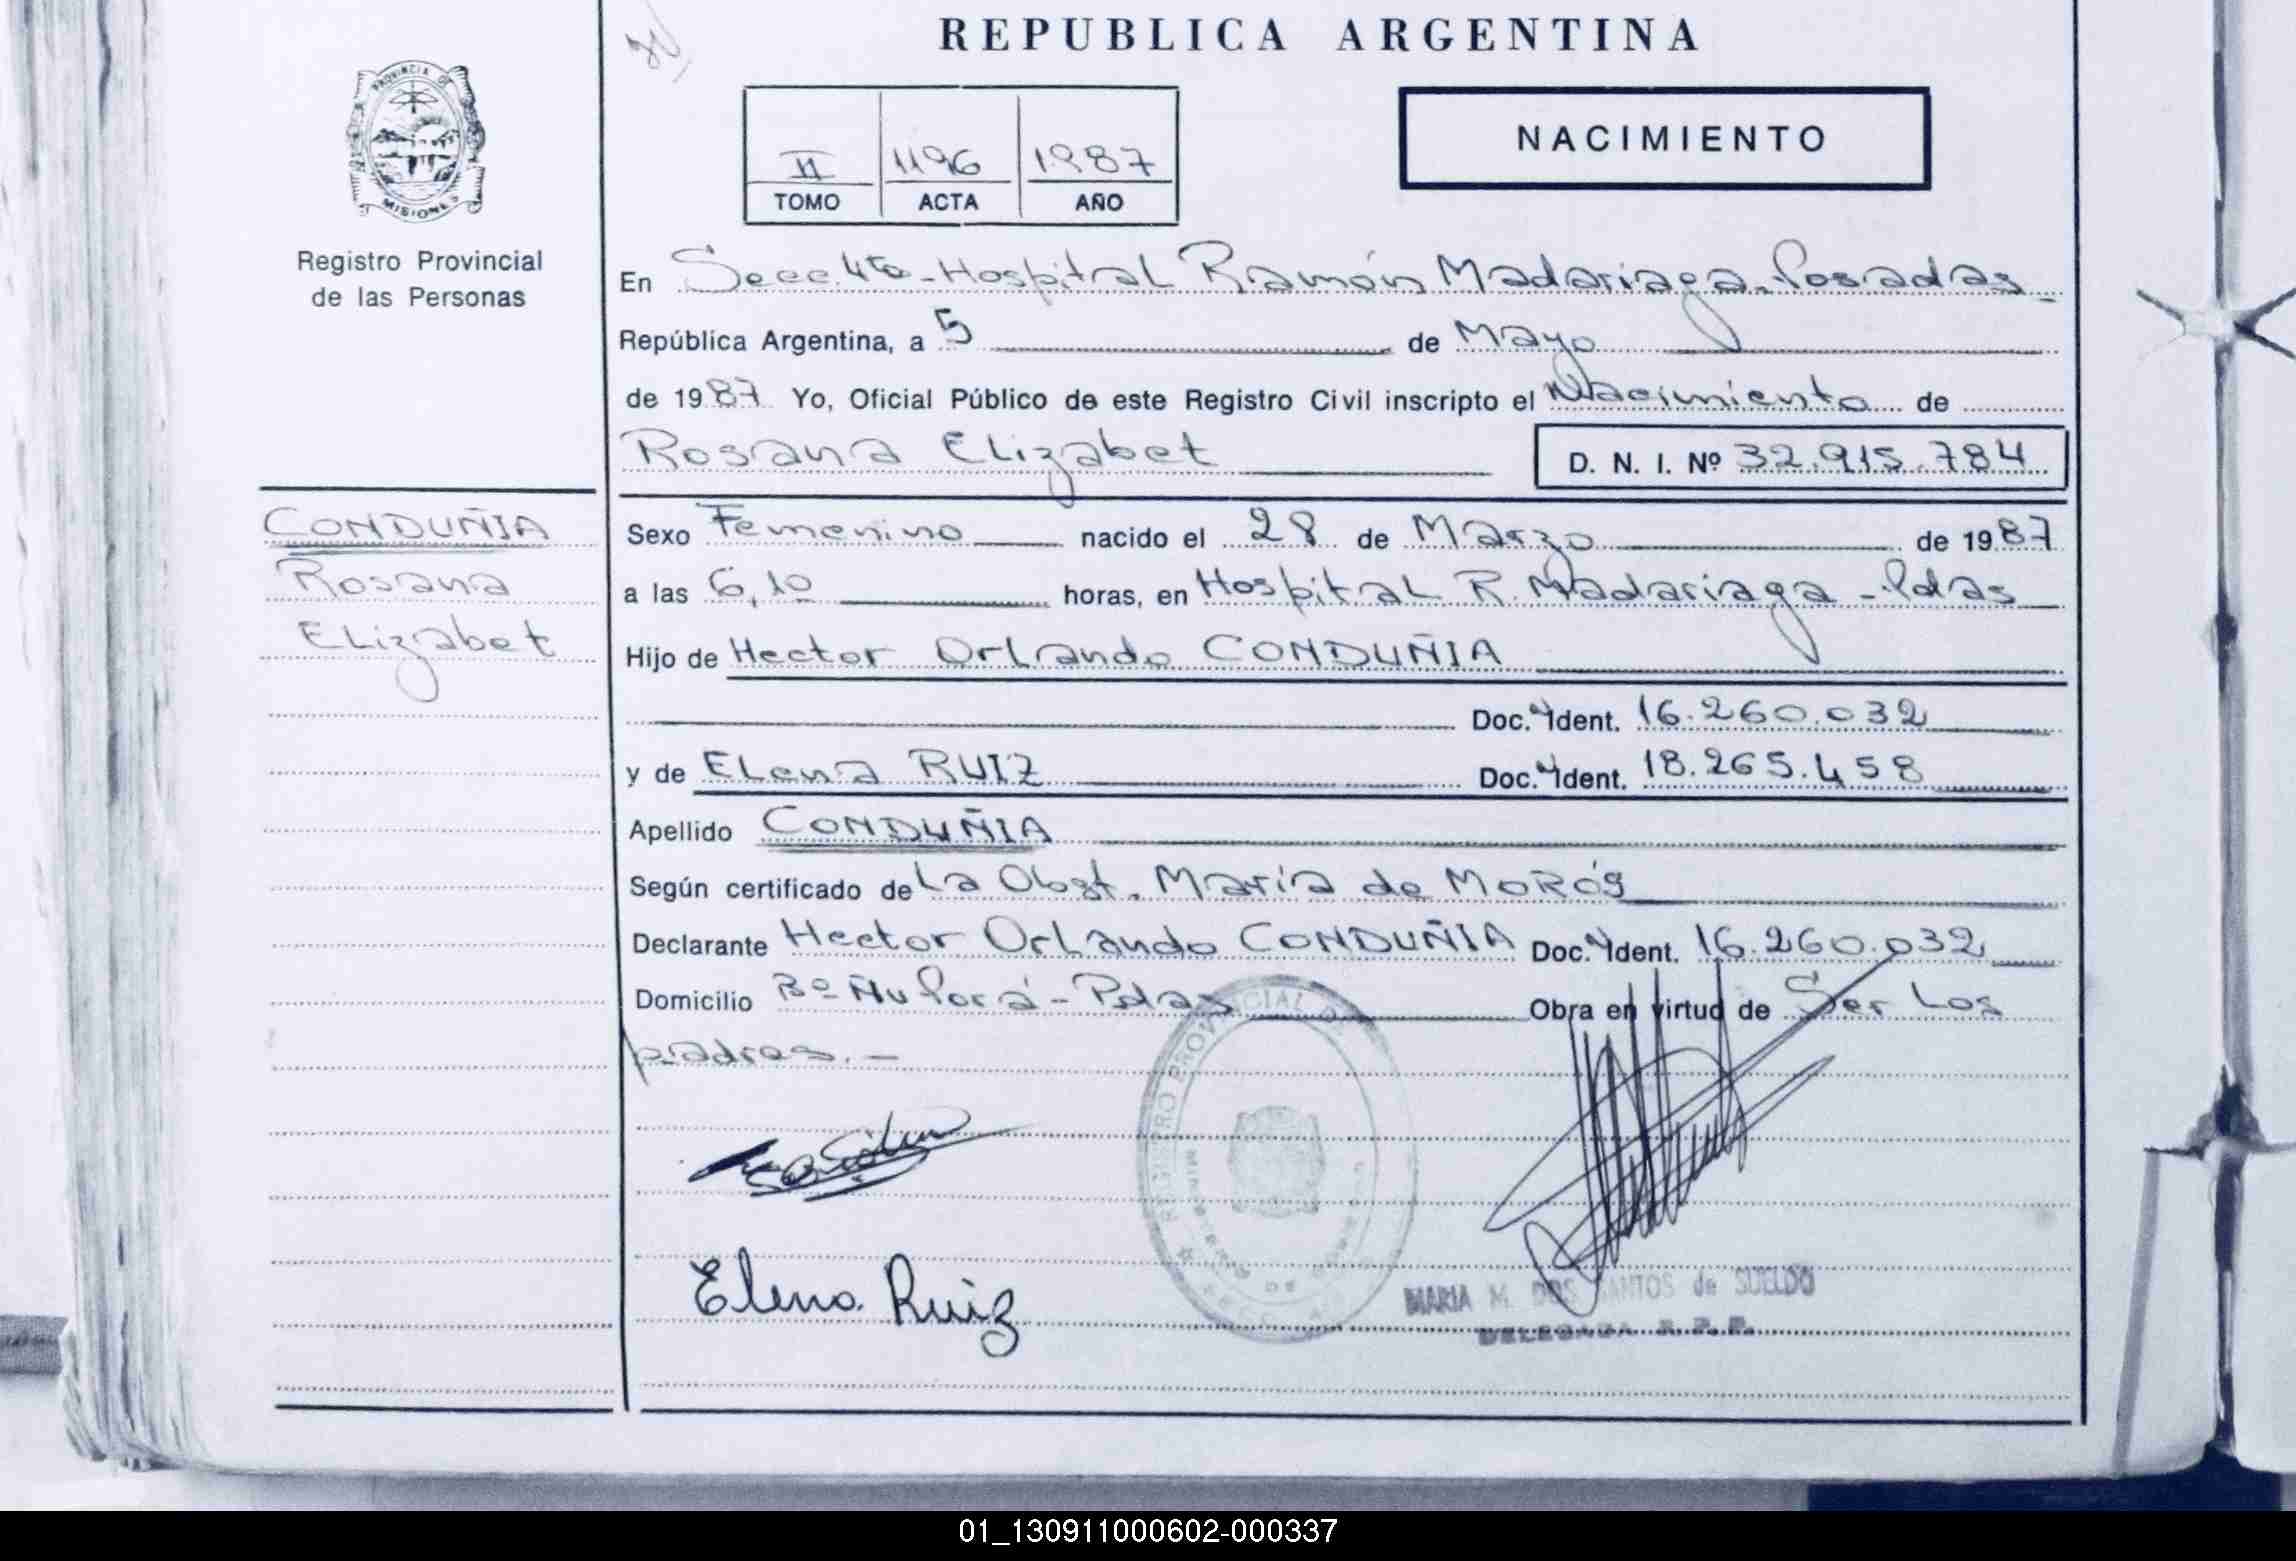 REPUBLICA ARGENTINA
PROVINCIA DE
MISIONES
Registro Provincial
de las Personas
II 1196 1987
TOMO ACTA AÑO
NACIMIENTO
En Secc. 4ta - Hospital Ramón Madariaga - Posadas -
República Argentina, a 5 de Mayo
de 1987 Yo, Oficial Público de este Registro Civil inscripto el Nacimiento de
Rosana Elizabet D. N. I. Nº 32.915.784
CONDUÑIA
Rosana
Elizabet
Sexo Femenino nacido el 28 de Marzo de 1987
a las 6,10 horas, en Hospital R. Madariaga - Pdas
Hijo de Hector Orlando CONDUÑIA
Doc. Ident. 16.260.032
y de Elena RUIZ Doc. Ident. 18.265.458
Apellido CONDUÑIA
Según certificado de La Obst. María de MORÓS
Declarante Hector Orlando CONDUÑIA Doc. Ident. 16.260.032
Domicilio Bº Ñu Porá - Pdas Obra en virtud de Ser Los
padres. -
REGISTRO PROVINCIAL DE
MINISTERIO DE GOBIERNO
Elena Ruiz
MARIA M. DOS SANTOS de SUELDO
DELEGADA R.P.P.
01_130911000602-000337